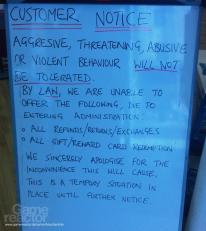 CUSTOMER NOTICE
AGGRESSIVE, THREATENING, ABUSIVE
OR VIOLENT BEHAVIOUR WILL NOT
BE TOLERATED.
BY LAW, WE ARE UNABLE TO
OFFER THE FOLLOWING, DUE TO
ENTERING ADMINISTRATION:
○ ALL REFUNDS/RETURNS/EXCHANGES
○ ALL GIFT/REWARD CARD REDEMPTION
WE SINCERELY APOLOGISE FOR THE
INCONVENIENCE THIS WILL CAUSE,
THIS IS A TEMPORARY SITUATION IN
PLACE UNTIL FURTHER NOTICE.
Game
reactor